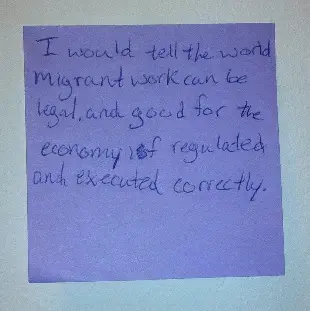 I would tell the world
migrant work can be
legal, and good for the
economy if regulated
and executed correctly.